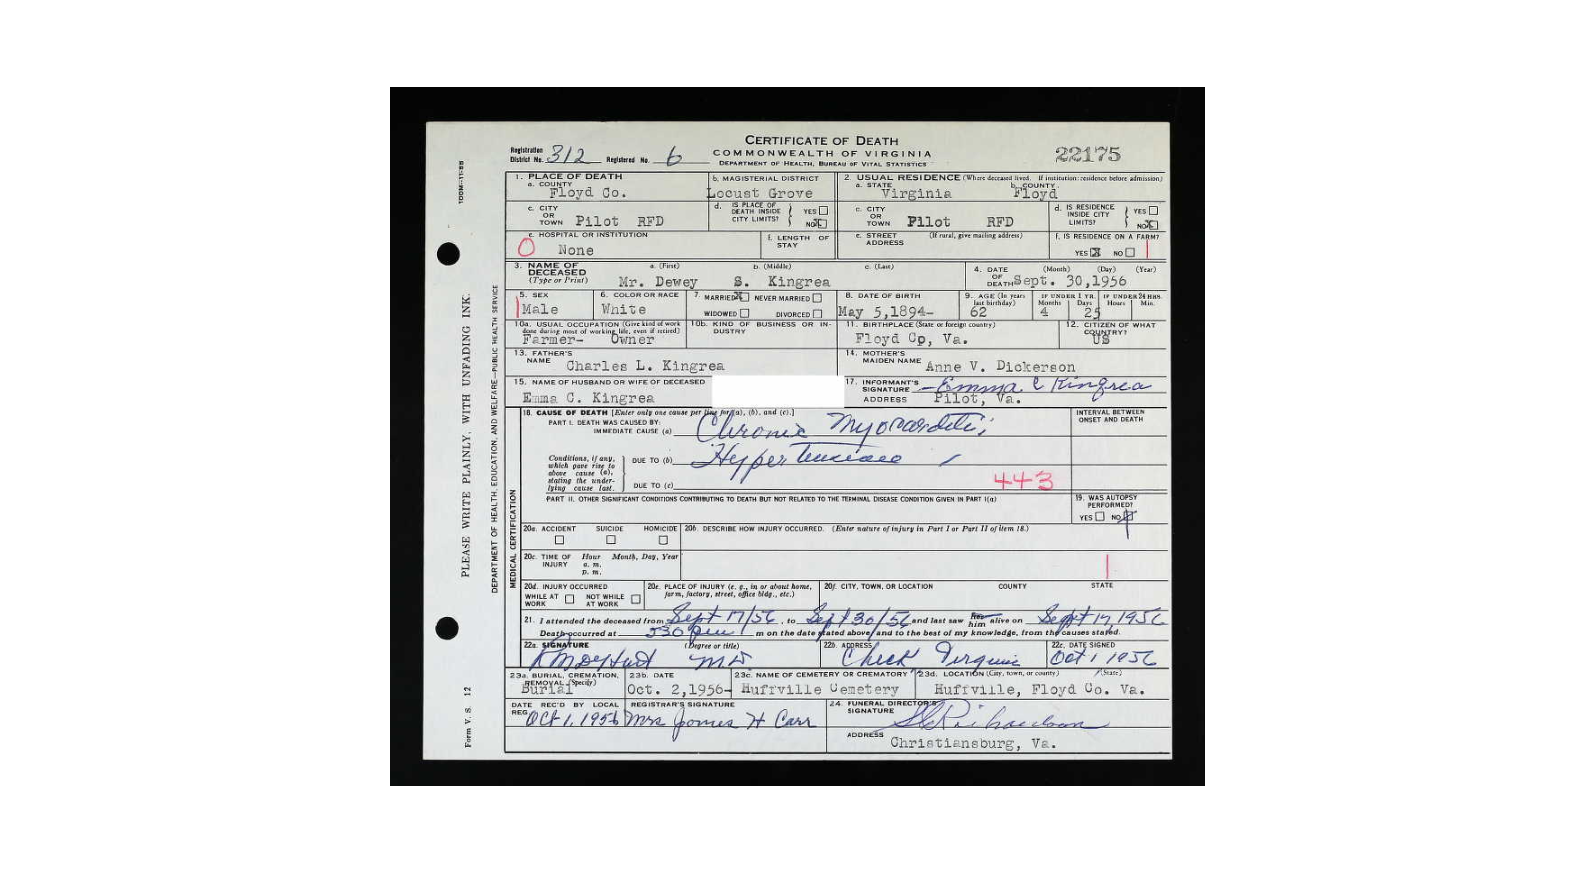 CERTIFICATE OF DEATH
COMMONWEALTH OF VIRGINIA
DEPARTMENT OF HEALTH, BUREAU OF VITAL STATISTICS
22175
Registration District No. 312 Registered No. 6
100M-11-55
PLEASE WRITE PLAINLY, WITH UNFADING INK.
DEPARTMENT OF HEALTH, EDUCATION, AND WELFARE—PUBLIC HEALTH SERVICE
Form V. S. 12
MEDICAL CERTIFICATION
1. PLACE OF DEATH
a. COUNTY
Floyd Co.
b. MAGISTERIAL DISTRICT
Locust Grove
2. USUAL RESIDENCE (Where deceased lived. If institution: residence before admission)
a. STATE
Virginia
b. COUNTY
Floyd
c. CITY OR TOWN Pilot RFD
d. IS PLACE OF DEATH INSIDE CITY LIMITS? YES NO X
c. CITY OR TOWN Pilot RFD
d. IS RESIDENCE INSIDE CITY LIMITS? YES NO X
e. HOSPITAL OR INSTITUTION
None
f. LENGTH OF STAY
e. STREET ADDRESS (If rural, give mailing address)
f. IS RESIDENCE ON A FARM?
YES X NO
3. NAME OF DECEASED (Type or Print)
a. (First) b. (Middle) c. (Last)
Mr. Dewey S. Kingrea
4. DATE OF DEATH (Month) (Day) (Year)
Sept. 30,1956
5. SEX
Male
6. COLOR OR RACE
White
7. MARRIED X NEVER MARRIED
WIDOWED DIVORCED
8. DATE OF BIRTH
May 5,1894-
9. AGE (In years last birthday)
62
IF UNDER 1 YR. Months Days
4 25
IF UNDER 24 HRS. Hours Min.
10a. USUAL OCCUPATION (Give kind of work done during most of working life, even if retired)
Farmer- Owner
10b. KIND OF BUSINESS OR INDUSTRY
11. BIRTHPLACE (State or foreign country)
Floyd Cp, Va.
12. CITIZEN OF WHAT COUNTRY?
US
13. FATHER'S NAME
Charles L. Kingrea
14. MOTHER'S MAIDEN NAME
Anne V. Dickerson
15. NAME OF HUSBAND OR WIFE OF DECEASED
Emma C. Kingrea
17. INFORMANT'S SIGNATURE Emma C Kingrea
ADDRESS Pilot, Va.
18. CAUSE OF DEATH [Enter only one cause per line for (a), (b), and (c).]
INTERVAL BETWEEN ONSET AND DEATH
PART I. DEATH WAS CAUSED BY:
IMMEDIATE CAUSE (a) Chronic Myocarditis
Conditions, if any, which gave rise to above cause (a), stating the underlying cause last.
DUE TO (b) Hypertension
DUE TO (c)
443
PART II. OTHER SIGNIFICANT CONDITIONS CONTRIBUTING TO DEATH BUT NOT RELATED TO THE TERMINAL DISEASE CONDITION GIVEN IN PART I(a)
19. WAS AUTOPSY PERFORMED?
YES NO
20a. ACCIDENT SUICIDE HOMICIDE
20b. DESCRIBE HOW INJURY OCCURRED. (Enter nature of injury in Part I or Part II of item 18.)
20c. TIME OF INJURY Hour Month, Day, Year
a. m.
p. m.
20d. INJURY OCCURRED
WHILE AT WORK NOT WHILE AT WORK
20e. PLACE OF INJURY (e. g., in or about home, farm, factory, street, office bldg., etc.)
20f. CITY, TOWN, OR LOCATION COUNTY STATE
21. I attended the deceased from Sept 17/56, to Sept 30/56 and last saw her him alive on Sept 17, 1956
Death occurred at 530 pm m on the date stated above; and to the best of my knowledge, from the causes stated.
22a. SIGNATURE (Degree or title)
MD
22b. ADDRESS
Check Virginia
22c. DATE SIGNED
Oct 1 1956
23a. BURIAL, CREMATION, REMOVAL (Specify)
Burial
23b. DATE
Oct. 2,1956-
23c. NAME OF CEMETERY OR CREMATORY
Huffville Cemetery
23d. LOCATION (City, town, or county) (State)
Huffville, Floyd Co. Va.
DATE REC'D BY LOCAL REG. Oct 1, 1956
REGISTRAR'S SIGNATURE
Mrs James H Carr
24. FUNERAL DIRECTOR'S SIGNATURE
Richardson
ADDRESS Christiansburg, Va.